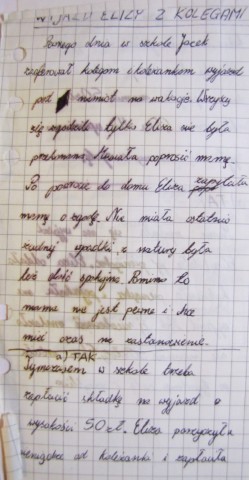 WYJAZD ELIZY Z KOLEGAMI
Pewnego dnia w szkole Jacek
zaoferował kolegom i koleżankom wyjazd
pod namiot na wakacje. Wszyscy
się zgodzili tylko Eliza nie była
przekonana. Musiała poprosić mamę.
Po powrocie do domu Eliza zapytała
mamę o zgodę. Nie miała ostatnio
żadnej wpadki z natury była
też dość spokojna. Pomimo to
mama nie jest pewna i chce
mieć czas na zastanowienie.
a) TAK
Tymczasem w szkole trzeba
zapłacić składkę na wyjazd o
wysokości 50 zł. Eliza pożyczyła
pieniądze od koleżanki i zapłaciła